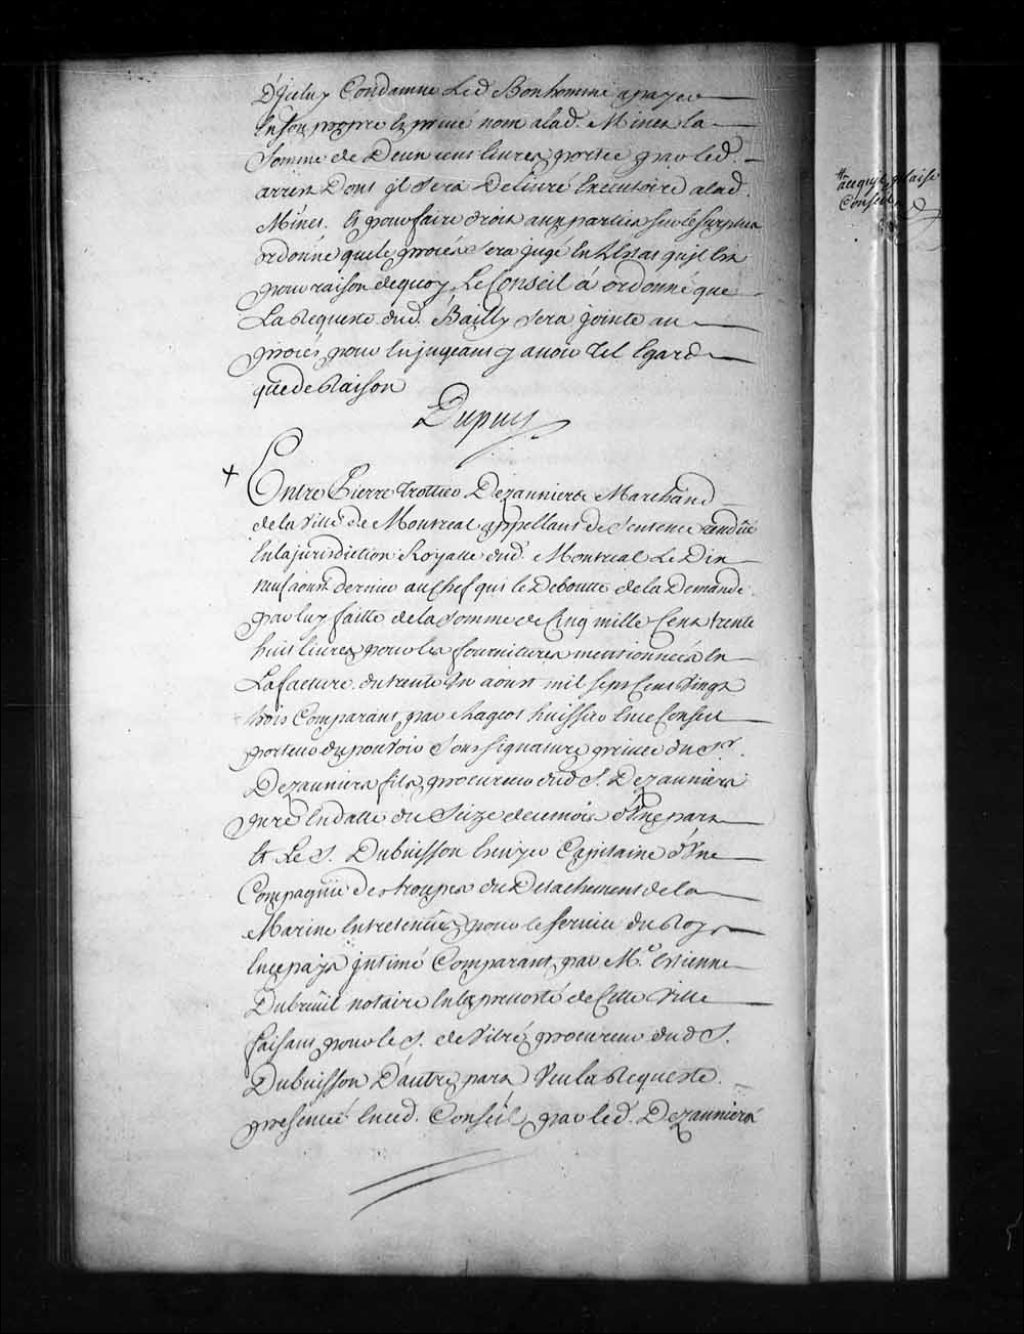 D'Jceluy Condamne Led Bonhomme apayer
En son propre & privé nom alad. Mines la
Somme de Deux cens livres portée par led.
arrest Dont jl sera Delivré Executoire alad.
Mines. Et pour faire droit aux parties sur le surplus
ordonne que le procés sera jugé En L'Estat qu'jl Est
pour raison dequoy Le Conseil á ordonné que
La Requeste dud. Bailly sera jointe au
procés pour En jugeant y avoir tel Egard
que de Raison
Dupuy
+ Entre Pierre Trottier Dezauniers Marchand
de la Ville de Montreal appellant de Sentence rendüe
En la jurisdiction Royalle dud. Montreal Le Dix
neuf aoust dernier au Chef qui le Deboutte de la Demande
par luy faitte de la somme de Cinq mille Cent trente
huit livres pour les fournitures mentionnées En
La facture du trente Un aoust mil sept Cent Vingt
trois Comparant par Rageot huissier En ce Conseil
porteur du pouvoir sous signature privée du Sr.
Dezauniers fils procureur dud S. Dezauniers
pere En datte du Seize de ce mois d'Une part
Et Le S. Dubuisson Ecuyer Capitaine d'Une
Compagnie des troupes du Detachement de la
Marine Entretenües pour le service du Roy
En ce pays jntimé Comparant par Me. Estienne
Dubreüil notaire En la prevosté de Cette Ville
faisant pour le S. de Vitré procureur dud S.
Dubuisson D'autre part Veu la Requeste
presentée En ced. Conseil par led. Dezauniers
Conseil